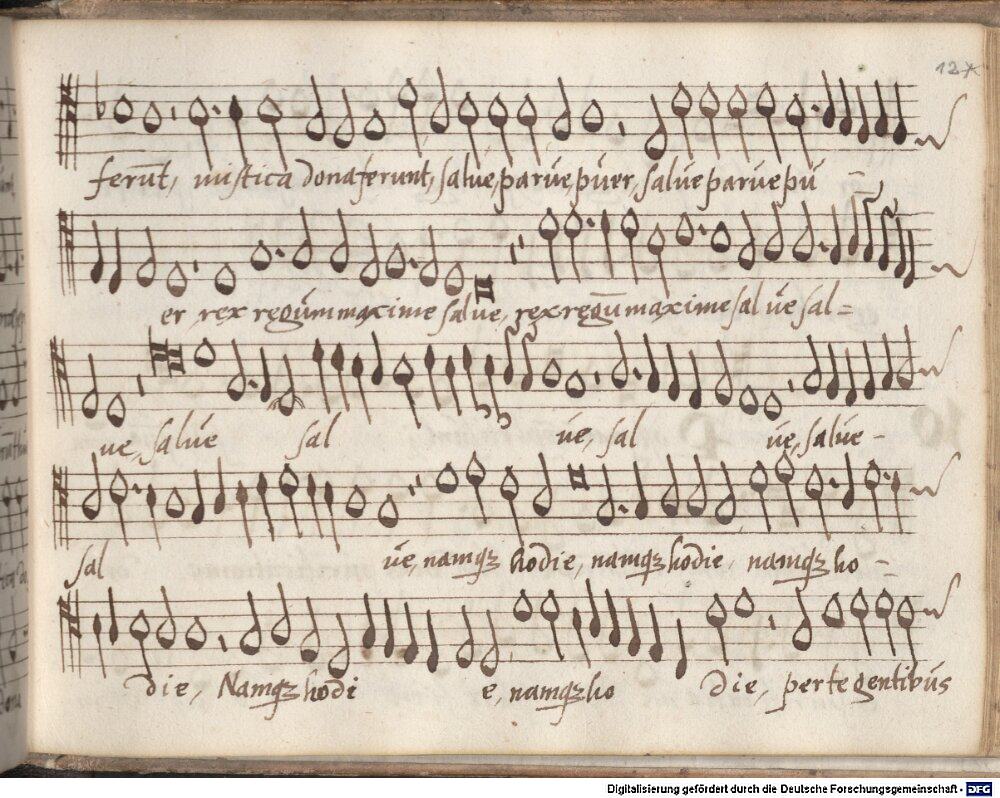 127
ferūt, mistica dona ferunt, salve, parve, puer, salve parve pu
er, rex regum maxime salve, rex regū maxime salve sal=
ve, salve sal ve, sal ve, salve -
sal ve, namqꝫ hodie, namqꝫ hodie, namqꝫ ho
die, Namqꝫ hodi e, namqꝫ ho die, per te gentibus
Digitalisierung gefördert durch die Deutsche Forschungsgemeinschaft - DFG